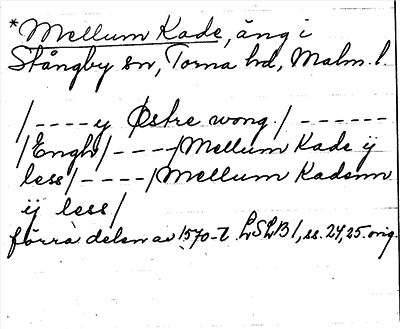 *Mellum Kade, äng i
Stångby sn, Torna hd, Malm. l.
/----y Østre wong./------
/Engh/----/Mellum Kade ÿ
less/----/Mellum Kadenn
ÿ less/
förra delen av 1570-t. LSLB 1, ss. 24, 25. orig.